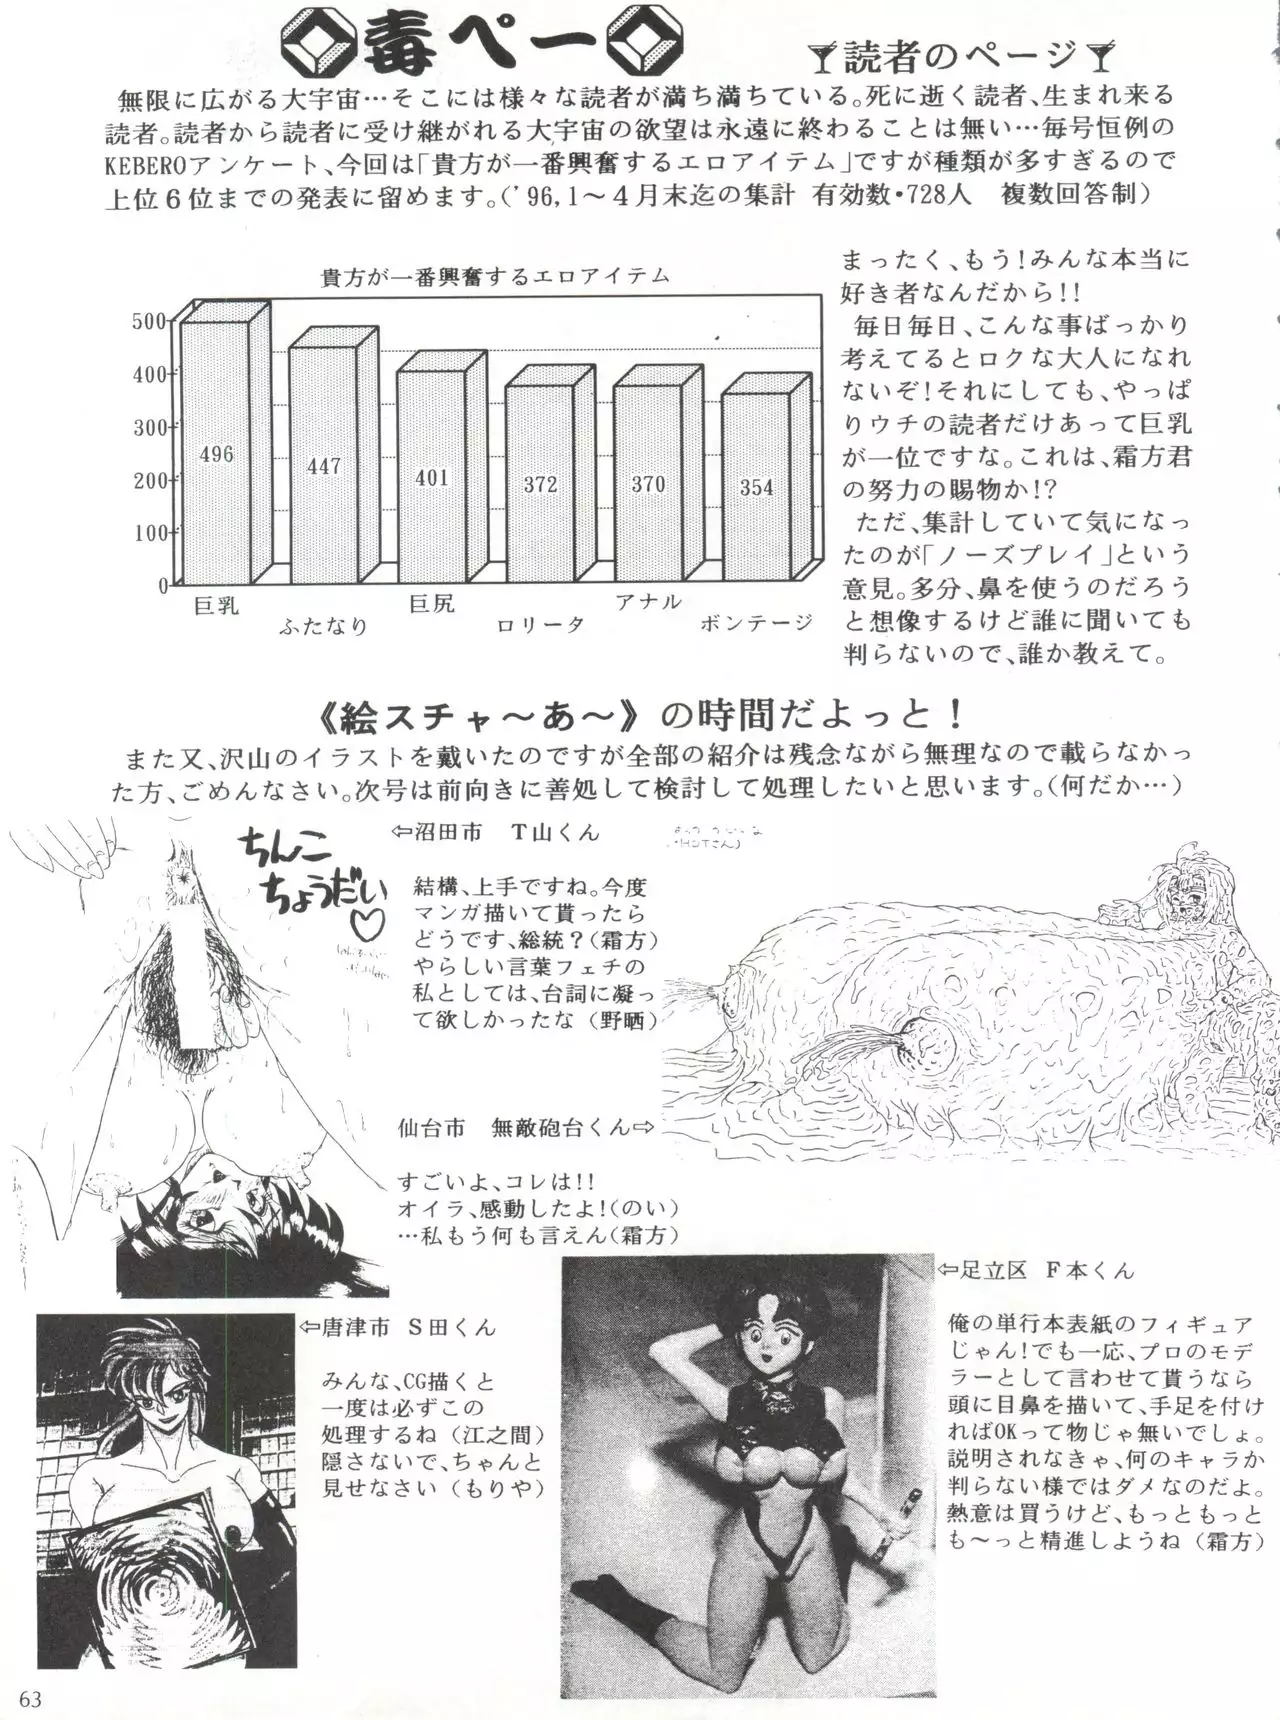 毒ペー
読者のページ
無限に広がる大宇宙…そこには様々な読者が満ち満ちている。死に逝く読者、生まれ来る
読者。読者から読者に受け継がれる大宇宙の欲望は永遠に終わることは無い…毎号恒例の
KEBEROアンケート、今回は「貴方が一番興奮するエロアイテム」ですが種類が多すぎるので
上位６位までの発表に留めます。('96,1～４月末迄の集計 有効数・728人　複数回答制)
貴方が一番興奮するエロアイテム
500
400
300
200
100
0
496
447
401
372
370
354
巨乳
ふたなり
巨尻
ロリータ
アナル
ボンテージ
まったく、もう!みんな本当に
好き者なんだから!!
毎日毎日、こんな事ばっかり
考えてるとロクな大人になれ
ないぞ!それにしても、やっぱ
りウチの読者だけあって巨乳
が一位ですな。これは、霜方君
の努力の賜物か!?
ただ、集計していて気になっ
たのが「ノーズプレイ」という
意見。多分、鼻を使うのだろう
と想像するけど誰に聞いても
判らないので、誰か教えて。
《絵スチャ～あ～》の時間だよっと!
また又、沢山のイラストを戴いたのですが全部の紹介は残念ながら無理なので載らなかっ
た方、ごめんなさい。次号は前向きに善処して検討して処理したいと思います。(何だか…)
ちんこ
ちょうだい♡
⇦沼田市　Ｔ山くん
結構、上手ですね。今度
マンガ描いて貰ったら
どうです、総統？(霜方)
やらしい言葉フェチの
私としては、台詞に凝っ
て欲しかったな (野晒)
仙台市　無敵砲台くん⇨
すごいよ、コレは!!
オイラ、感動したよ!(のい)
…私もう何も言えん(霜方)
⇦唐津市　Ｓ田くん
みんな、CG描くと
一度は必ずこの
処理するね (江之間)
隠さないで、ちゃんと
見せなさい (もりや)
⇦足立区　Ｆ本くん
俺の単行本表紙のフィギュア
じゃん!でも一応、プロのモデ
ラーとして言わせて貰うなら
頭に目鼻を描いて、手足を付け
ればOKって物じゃ無いでしょ。
説明されなきゃ、何のキャラか
判らない様ではダメなのだよ。
熱意は買うけど、もっともっと
も～っと精進しようね (霜方)
63